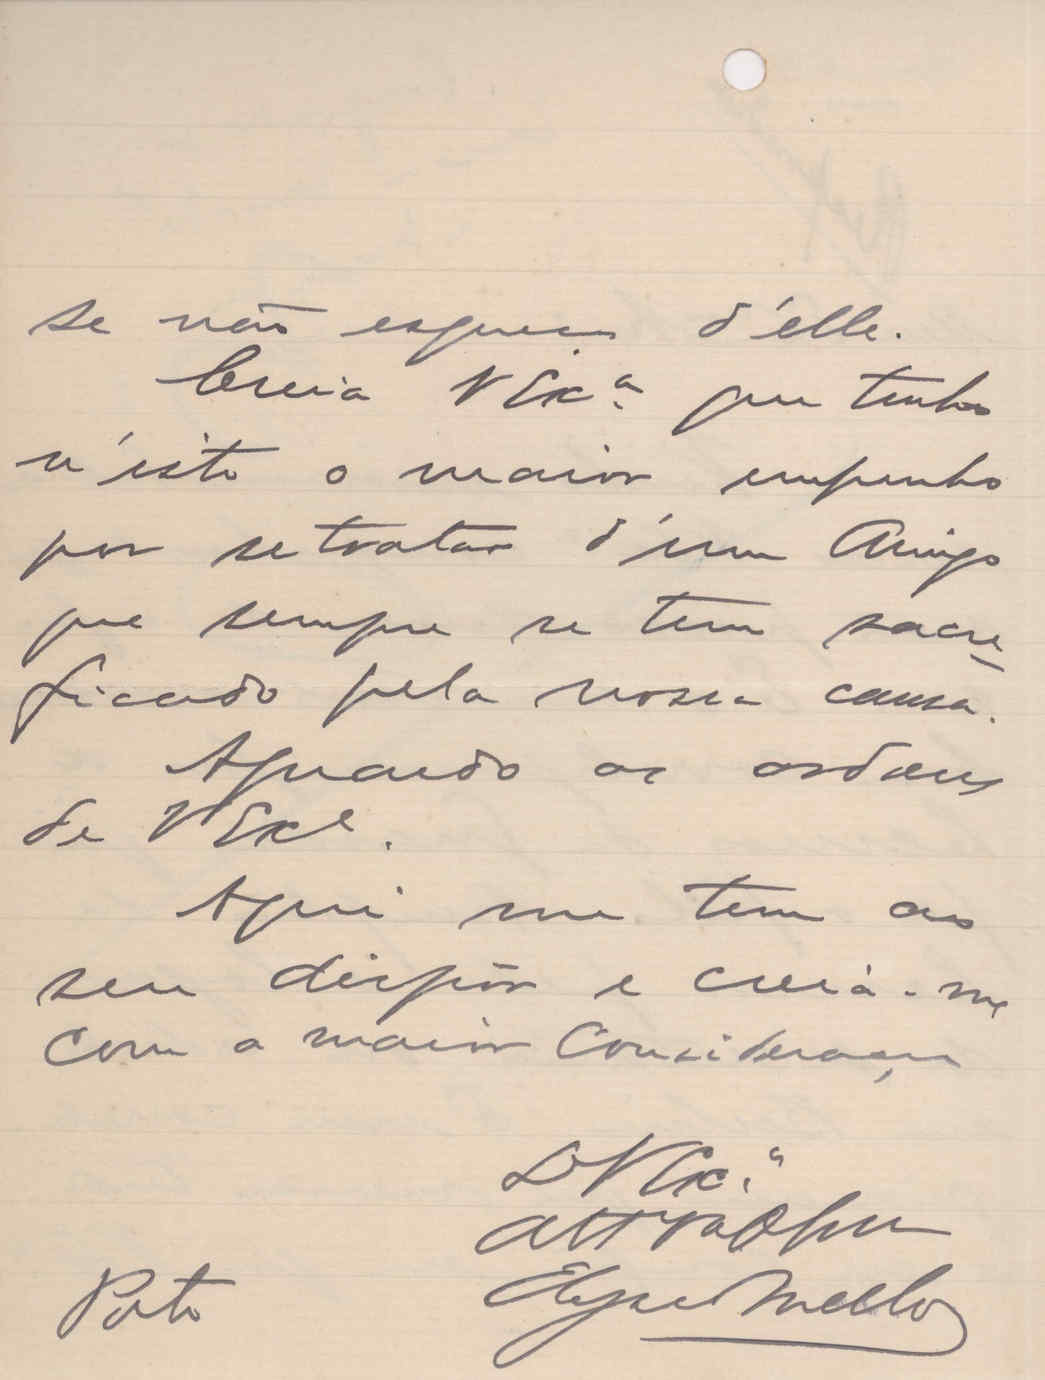 se não esqueça d'elle.
Creia V Exª. que tenho
n'isto o maior empenho
por se tratar d'um Amigo
que sempre se tem sacre-
ficado pela nossa causa.
Aguardo as ordens
de V Exª.
Aqui me tem ao
seu dispôr e creia-me
com a maior Consideração
D V Exª.
Att Vor
Mello
Porto